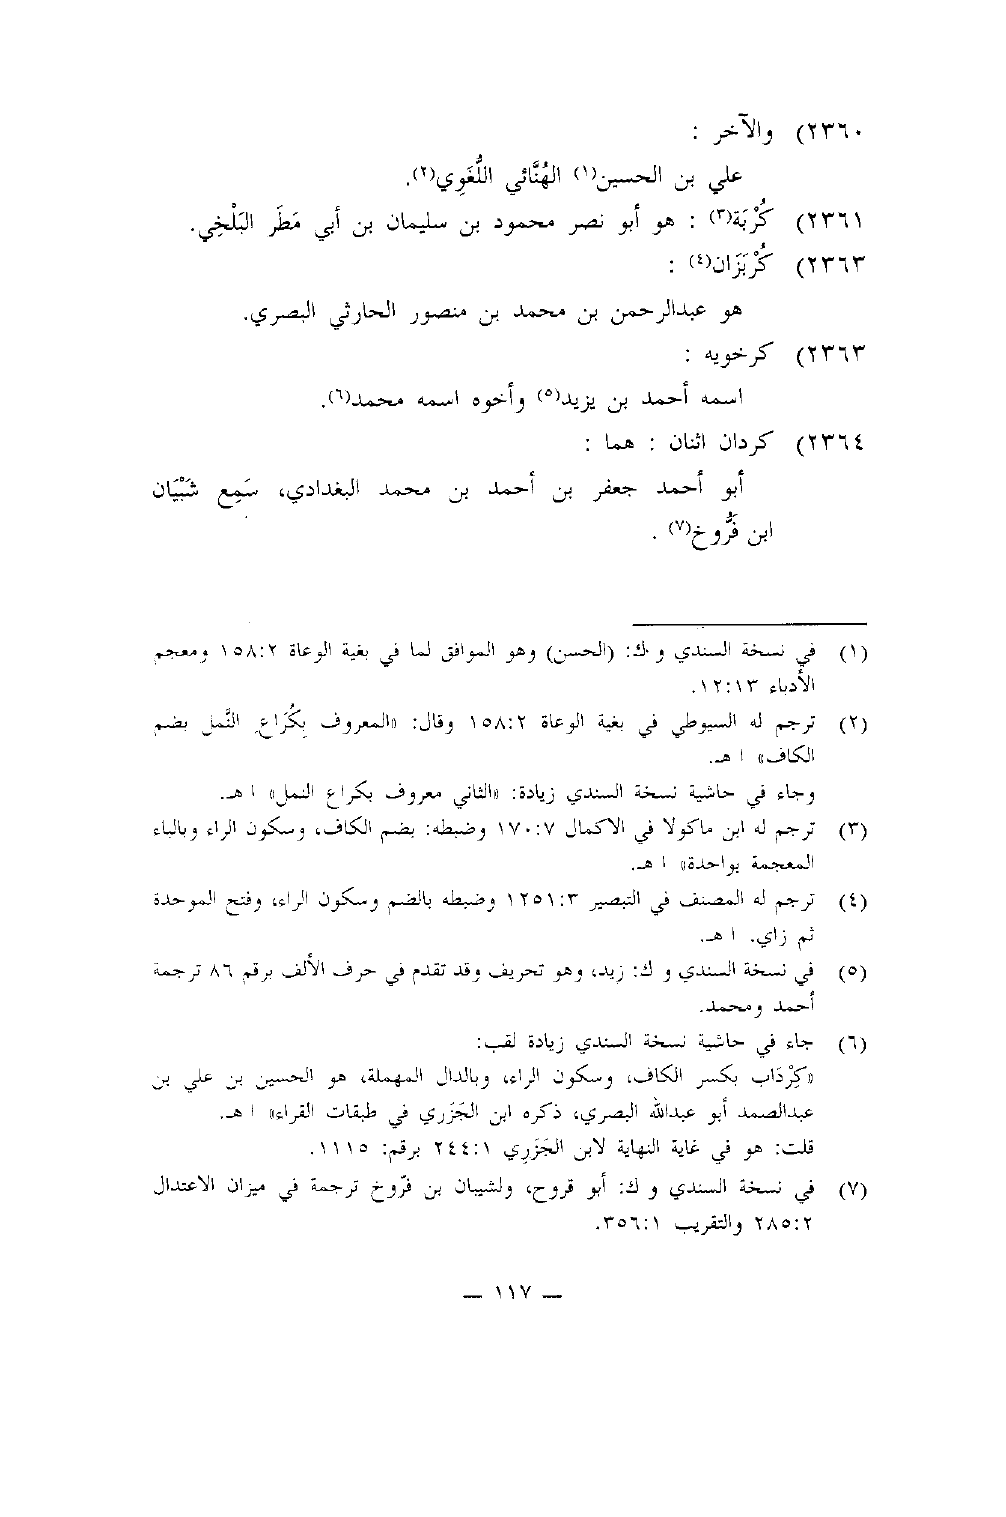 ٢٣٦٠) والآخر :
علي بن الحسين(١) الهُنَّائي اللُّغَوِي(٢).
٢٣٦١) كُرْبَة(٣) : هو أبو نصر محمود بن سليمان بن أبي مَطَر البَلْخِي.
٢٣٦٣) كُرْبَزَان(٤) :
هو عبدالرحمن بن محمد بن منصور الحارثي البصري.
٢٣٦٣) كرخويه :
اسمه أحمد بن يزيد(٥) وأخوه اسمه محمد(٦).
٢٣٦٤) كردان اثنان : هما :
أبو أحمد جعفر بن أحمد بن محمد البغدادي، سَمِع شَيْبَان
ابن فَرُّوخ(٧) .
(١) في نسخة السندي و ك: (الحسن) وهو الموافق لما في بغية الوعاة ١٥٨:٢ ومعجم
الأدباء ١٢:١٣.
(٢) ترجم له السيوطي في بغية الوعاة ١٥٨:٢ وقال: «المعروف بِكُرَاعِ النَّمل بضم
الكاف» ا هـ.
وجاء في حاشية نسخة السندي زيادة: «الثاني معروف بكراع النمل» ا هـ.
(٣) ترجم له ابن ماكولا في الاكمال ١٧٠:٧ وضبطه: بضم الكاف، وسكون الراء وبالباء
المعجمة بواحدة» ا هـ.
(٤) ترجم له المصنف في التبصير ١٢٥١:٣ وضبطه بالضم وسكون الراء، وفتح الموحدة
ثم زاي. ا هـ.
(٥) في نسخة السندي و ك: زيد، وهو تحريف وقد تقدم في حرف الألف برقم ٨٦ ترجمة
أحمد ومحمد.
(٦) جاء في حاشية نسخة السندي زيادة لقب:
«كِرْدَاب بكسر الكاف، وسكون الراء، وبالدال المهملة، هو الحسين بن علي بن
عبدالصمد أبو عبدالله البصري، ذكره ابن الجَزَري في طبقات القراء» ا هـ.
قلت: هو في غاية النهاية لابن الجَزَرِي ٢٤٤:١ برقم: ١١١٥.
(٧) في نسخة السندي و ك: أبو قروح، ولشيبان بن فرّوخ ترجمة في ميزان الاعتدال
٢٨٥:٢ والتقريب ٣٥٦:١.
— ١١٧ —